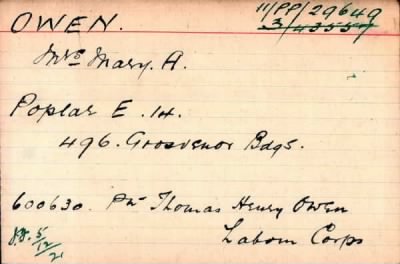 OWEN.
11/PP/29649
3/43557
Mrs Mary. A.
Poplar E. 14.
496. Grosvenor Bdgs.
600630. Pte Thomas Henry Owen
Labour Corps
5/12/21